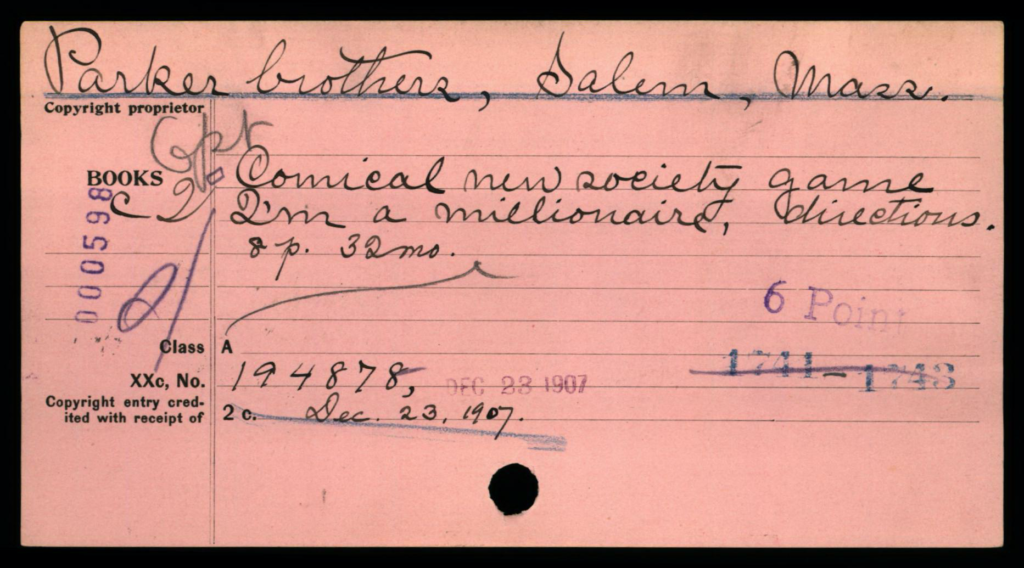 Parker brothers, Salem, Mass.
Copyright proprietor
Cpt
BOOKS
Comical new society game
C 2
I'm a millionaire, directions.
8 p. 32mo.
000598
6 Point
Class A
1741-1743
XXc, No. 194878, DEC 23 1907
Copyright entry cred-
ited with receipt of
2 c. Dec. 23, 1907.